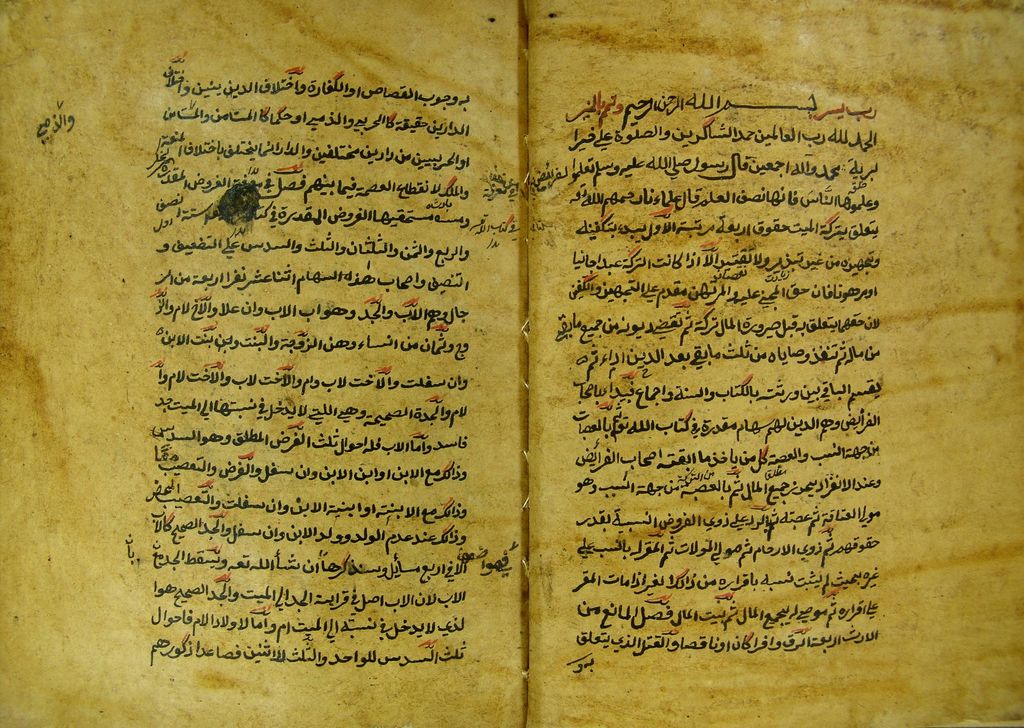 رب يسر بسم الله الرحمن الرحيم وتمم بالخير
الحمد لله رب العالمين حمد الشاكرين والصلوة على خير
البرية محمد وآله اجمعين قال رسول صلى الله عليه وسلم تعلموا الفرائض
وعلموها الناس فانها نصف العلم قال علماؤنا رحمهم الله تع
يتعلق بتركة الميت حقوق اربعة مرتبة الاول يبدء بتكفينه
وتجهيزه من غير تبذير ولا تقتير الا اذا كانت التركة عبدا جانيا
او مرهونا فان حق المجني عليه والمرتهن مقدم على التجهيز والتكفين
لان حقهما يتعلق به قبل صيرورة المال تركة ثم تقضى ديونه من جميع ما بقي
من ماله ثم تنفذ وصاياه من ثلث ما بقي بعد الدين ثم
يقسم الباقي بين ورثته بالكتاب والسنة واجماع فيبدأ باصحاب
الفرائض وهم الذين لهم سهام مقدرة في كتاب الله تع ثم بالعصبات
من جهة النسب والعصبة كل من ياخذ ما ابقته اصحاب الفرائض
وعند الانفراد يحرز جميع المال ثم بالعصبة من جهة السبب وهو
مولى العتاقة ثم عصبته ثم الرد على ذوي الفروض النسبية بقدر
حقوقهم ثم ذوي الارحام ثم مولى الموالات ثم المقر له بالنسب على
غيره بحيث لم يثبت نسبه باقراره من ذالك الغير اذا مات المقر
على اقراره ثم موصى له بجميع المال ثم بيت المال فصل المانع من
الارث اربعة الرق وافرا كان او ناقصا والقتل الذي يتعلق
به و
به وجوب القصاص او الكفارة واختلاف الدينين واختلاف
الدارين حقيقة كالحربي والذمي او حكما كالمستامن والذمي
او الحربيين من دارين مختلفين والدار انما يختلف باختلاف المنعة
والملك لانقطاع العصمة فيما بينهم فصل في معرفة الفروض المقدرة
ومستحقيها الفروض المقدرة في كتاب الله ستة نصف
والربع والثمن والثلثان والثلث والسدس على التضعيف و
التنصيف واصحاب هذه السهام اثنا عشر نفرا اربعة من الر
جال وهم الاب والجد وهو اب الاب وان علا والاخ لام والزو
ج وثمان من النساء وهن الزوجة والبنت وبنت الابن
وان سفلت والاخت لاب وام والاخت لاب والاخت لام والا
لام والجدة الصحيحة وهي التي لا يدخل في نسبتها الى الميت جد
فاسد واما الاب فله احوال ثلث الفرض المطلق وهو السدس
وذالك مع الابن او ابن الابن وان سفل والفرض والتعصيب معا
وذالك مع الابنة او ابنة الابن وان سفلت والتعصيب المحض
وذالك عند عدم الولد وولد الابن وان سفل والجد الصحيح كالاب
الا في اربع مسائل وسنذكرها ان شاء الله تعه ويسقط الجد
الاب لان الاب اصل في قرابة الجد الى الميت والجد الصحيح هو ا
لذي لا يدخل في نسبته الى الميت ام واما لاولاد الام فاحوال
ثلث السدس للواحد والثلث للاثنين فصاعدا ذكورهم